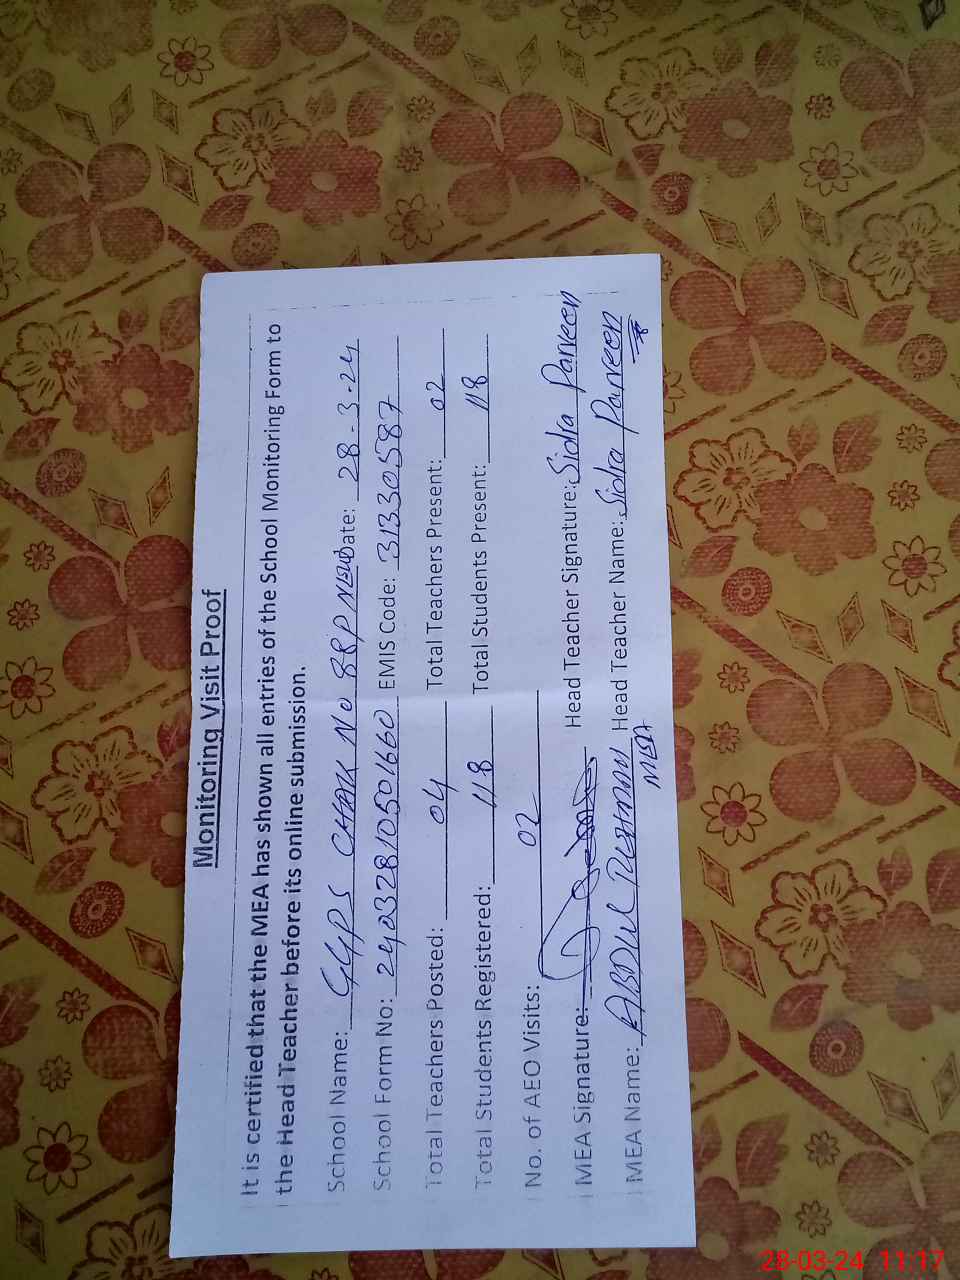 Monitoring Visit Proof
It is certified that the MEA has shown all entries of the School Monitoring Form to
the Head Teacher before its online submission.
School Name: GGPS CHAK No 88P NEW Date: 28-3-24
School Form No: 24032810501660 EMIS Code: 31330587
Total Teachers Posted: 04 Total Teachers Present: 02
Total Students Registered: 118 Total Students Present: 118
No. of AEO Visits: 02
MEA Signature: Head Teacher Signature: Sidra Parveen
MEA Name: ABDUL REHMAN MEA Head Teacher Name: Sidra Parveen
28-03-24 11:17